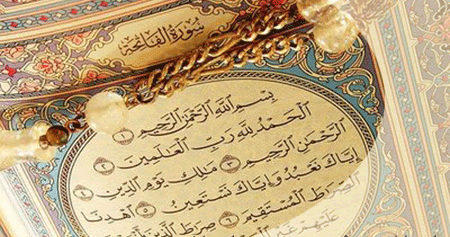 سُورَةُ الْفَاتِحَةِ
بِسْمِ اللَّهِ الرَّحْمَٰنِ الرَّحِيمِ ١
الْحَمْدُ لِلَّهِ رَبِّ الْعَالَمِينَ ٢
الرَّحْمَٰنِ الرَّحِيمِ ٣ مَالِكِ يَوْمِ الدِّينِ ٤
إِيَّاكَ نَعْبُدُ وَإِيَّاكَ نَسْتَعِينُ ٥ اهْدِنَا
الصِّرَاطَ الْمُسْتَقِيمَ ٦ صِرَاطَ الَّذِينَ
عَلَيْهِمْ غَيْرِ